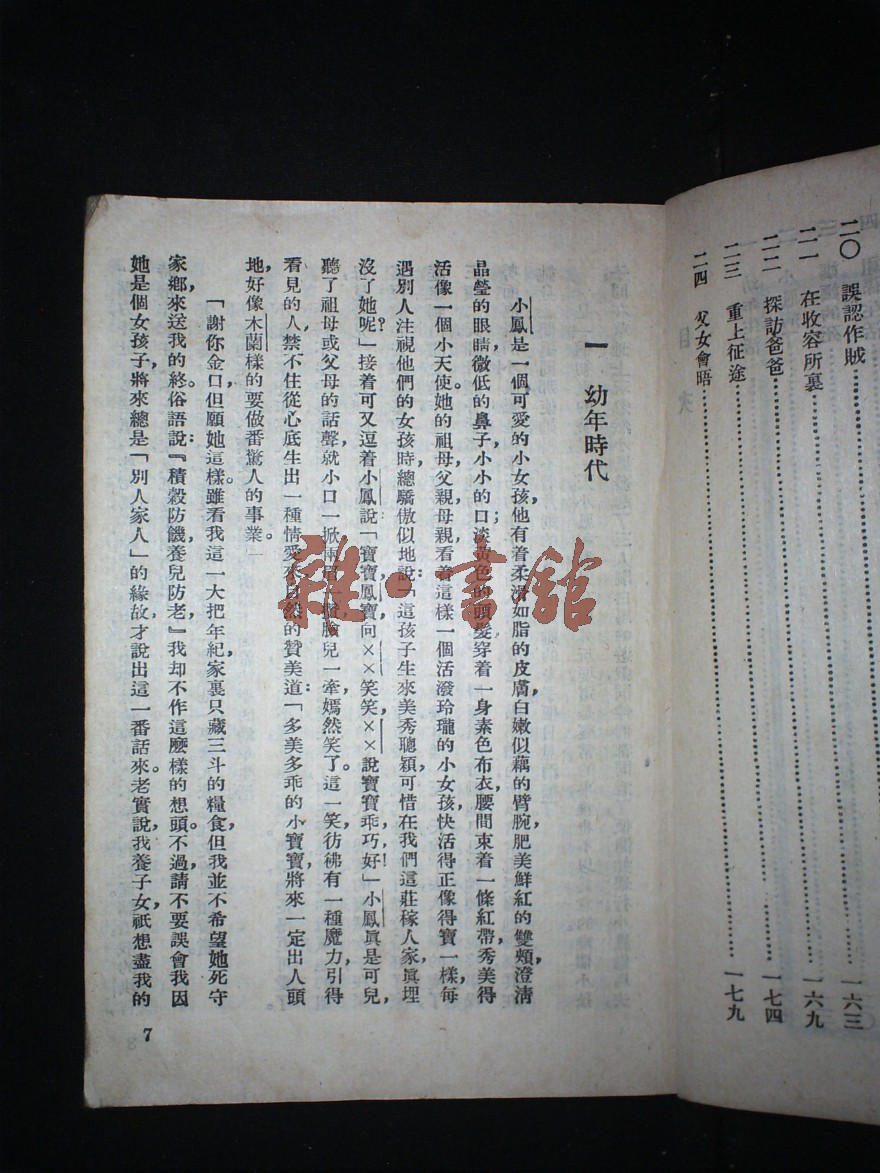 二〇 誤認作賊……一六三
二一 在收容所裏……一六九
二二 探訪爸爸……一七四
二三 重上征途……一七九
二四 父女會晤
一 幼年時代
小鳳是一個可愛的小女孩，他有着柔滑如脂的皮膚，白嫩似藕的臂腕，肥美鮮紅的雙頰，澄清
晶瑩的眼睛，微低的鼻子，小小的口；淡黃色的頭髮，穿着一身素色布衣，腰間束着一條紅帶，秀美得
活像一個小天使。她的祖母，父親，母親看着這樣一個活潑玲瓏的小女孩，快活得正像得寶一樣，每
遇別人注視他們的女孩時，總驕傲似地說：「這孩子生來美秀聰穎，可惜在我們這莊稼人家，眞埋
沒了她呢？」接着可又逗着小鳳說「寶寶，鳳寶向××笑笑，××說寶寶乖，巧，好！」小鳳眞是可兒，
聽了祖母或父母的話聲，就小口一掀，兩眉一 臉兒一牽，嫣然笑了。這一笑，彷彿有一種魔力，引得
看見的人，禁不住從心底生出一種情愛來 自然的贊美道：「多美多乖的小寶寶，將來一定出人頭
地，好像木蘭樣的要做番驚人的事業。」
「謝你金口，但願她這樣。雖看我這一大把年紀，家裏只藏三斗的糧食，但我並不希望她死守
家鄉來送我的終，俗語說：『積穀防饑，養兒防老』我却不作這麼樣的想頭。不過，請不要誤會我因
她是個女孩子，將來總是「別人家人」的緣故，才說出這一番話來。老實說，我養子女，祇想盡我的
7
雜·書舘